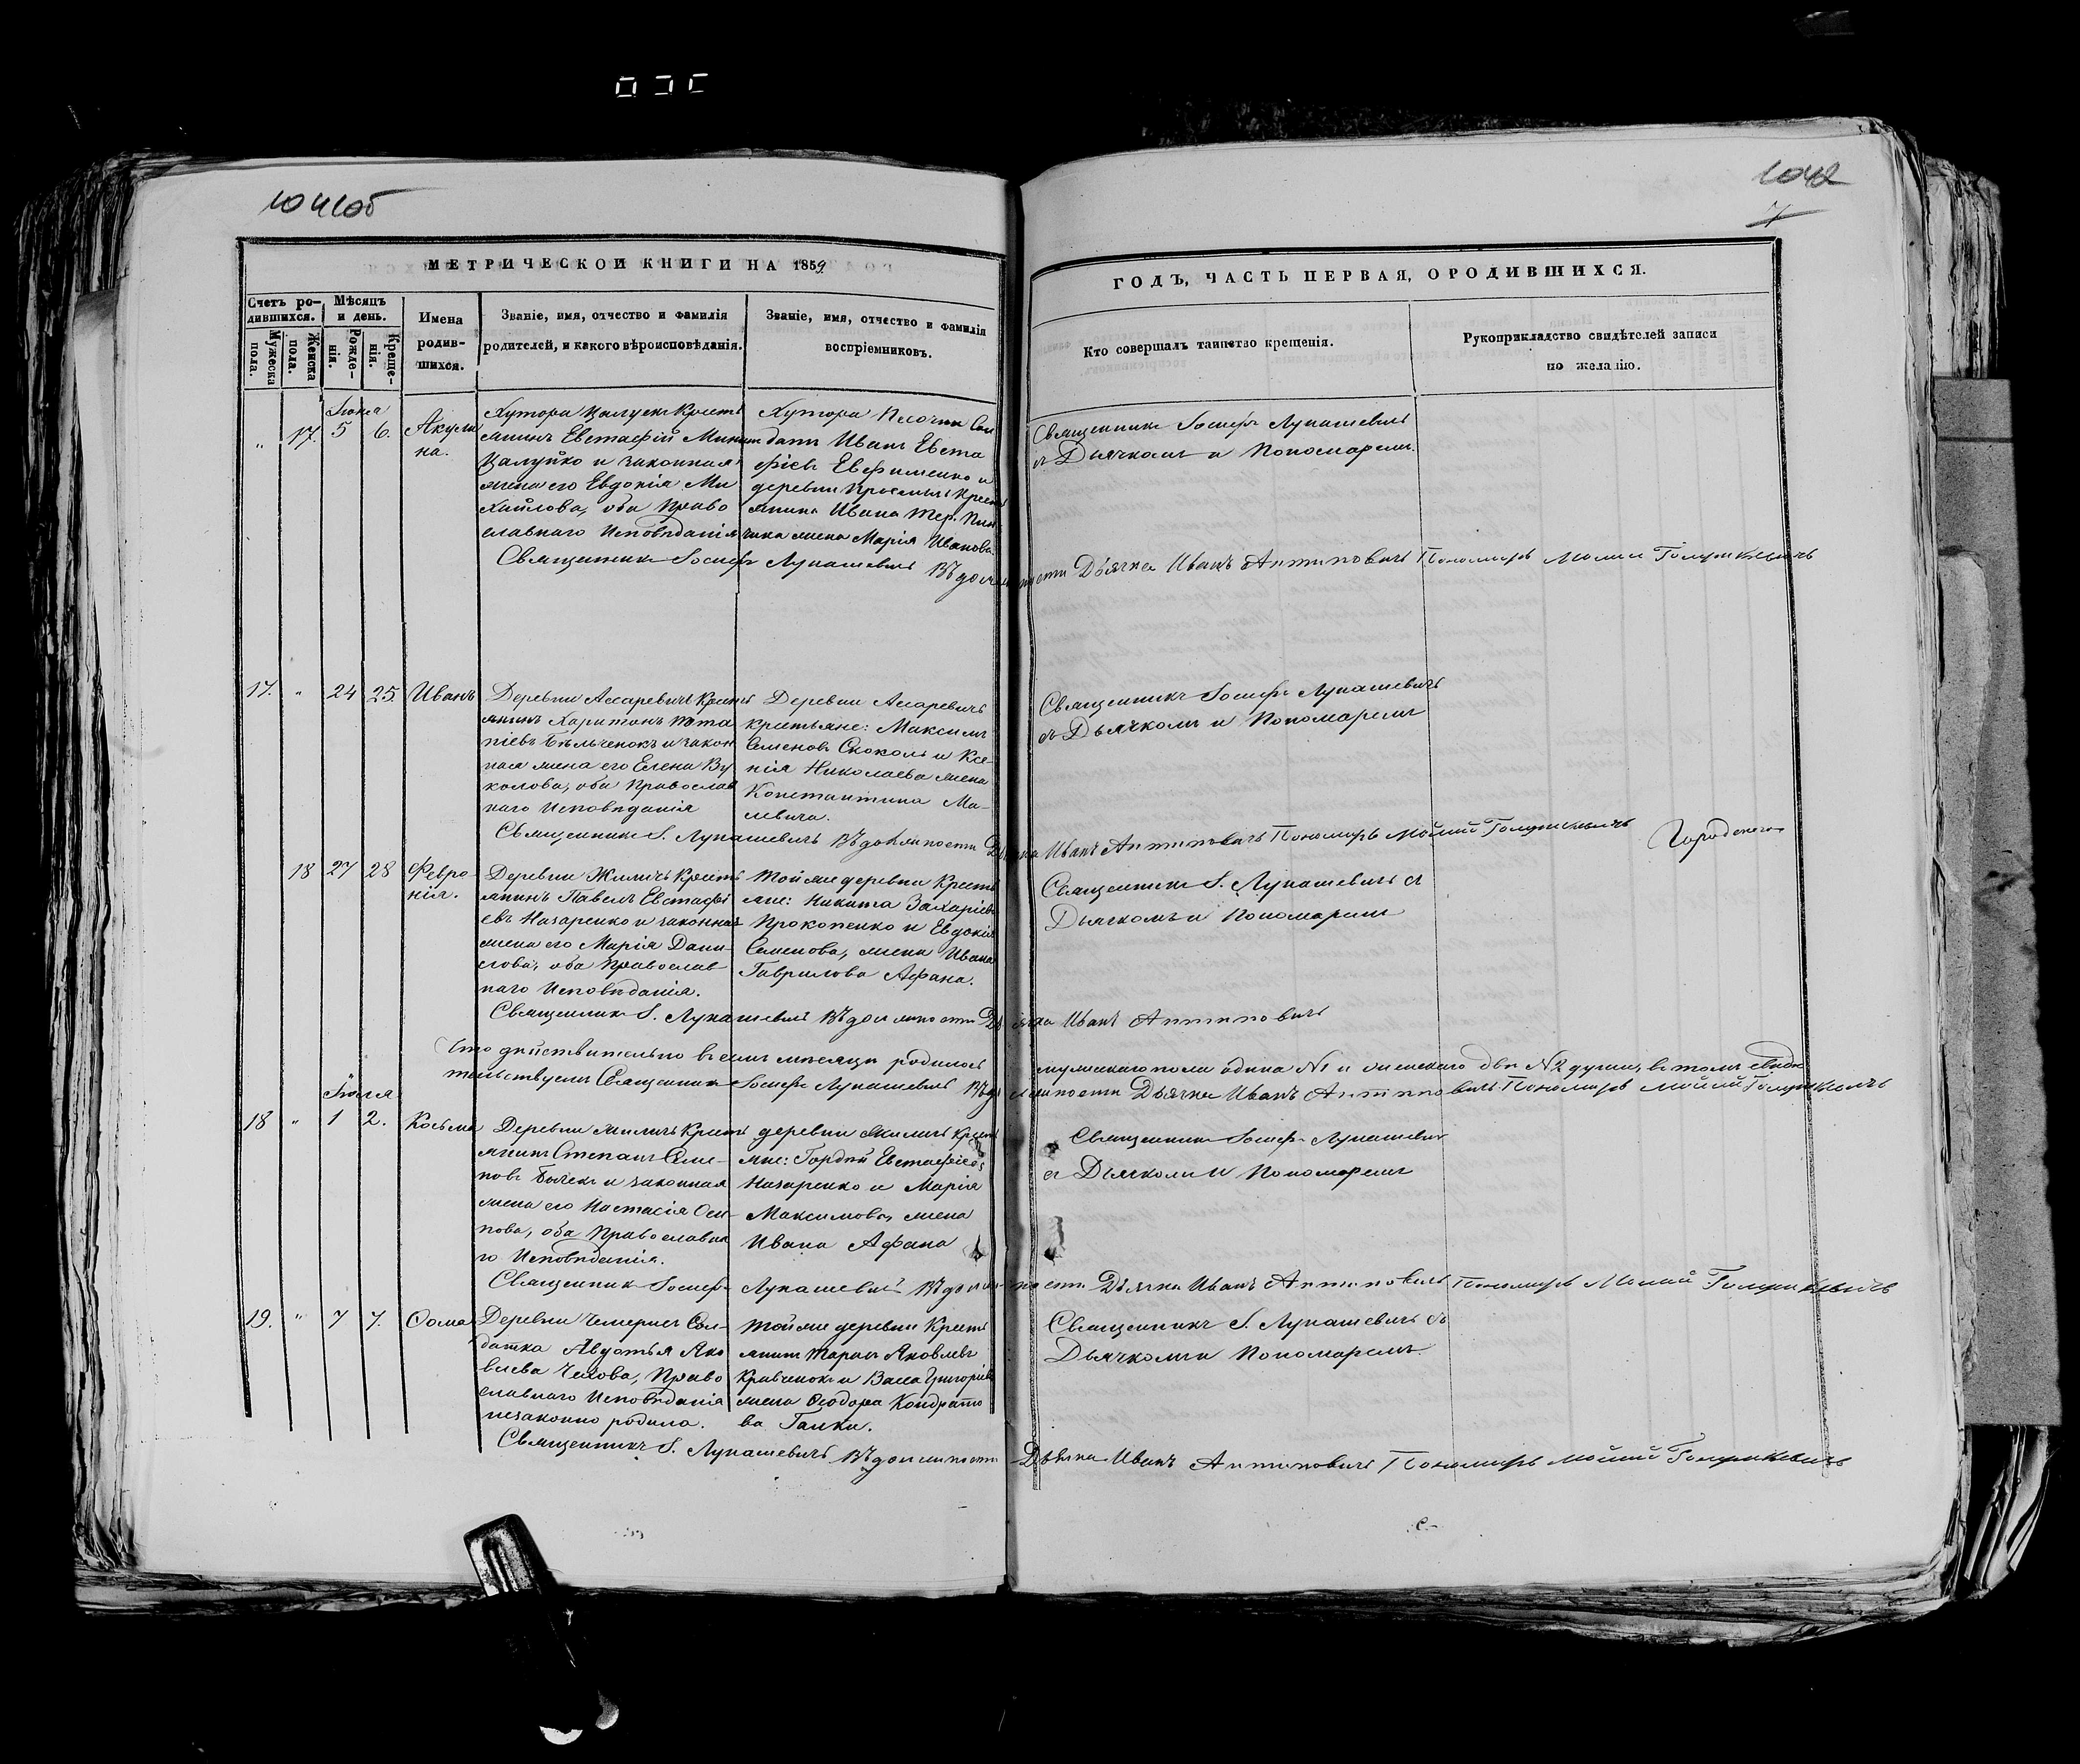 1041об
1042
7
МЕТРИЧЕСКОЙ КНИГИ НА 1859
ГОДЪ, ЧАСТЬ ПЕРВАЯ, О РОДИВШИХСЯ.
Счетъ ро-
дившихся.
Мужеска
пола.
Женска
пола.
Мѣсяцъ
и день.
Рожде-
нія.
Креще-
нія.
Имена
родив-
шихся.
Званіе, имя, отчество и фамилія
родителей, и какого вѣроисповѣданія.
Званіе, имя, отчество и фамилія
воспріемниковъ.
Кто совершалъ таинство крещенія.
Рукоприкладство свидѣтелей записи
по желанію.
Іюня
" 17. 5 6. Акули
на.
Хутора Цалуек Кресть
янинъ Евстафій Минин
Цалуйко и законная
жена его Евдокія Ми
хайлова, оба Право
славнаго Исповѣданія
Хутора Песочни Сол
датъ Иванъ Евста
фіевъ Евфименко и
деревни Кресть
янина Ивана
жена Марія Иванова
Священникъ Іосифъ Лукашевичъ
съ Дьячкомъ и Пономаремъ.
Священникъ Іосифъ Лукашевичъ Въ должности Дьячка Иванъ Антиповичъ Пономарь
17. " 24 25. Иванъ
Деревни Асаревичъ Кресть
янинъ Харитонъ Пота
піевъ Бѣльченокъ и закон
ная жена его Елена Ву
колова, оба Православ
наго Исповѣданія
Деревни Асаревичъ
крестьяне: Максимъ
Семеновъ Соколъ и Ксе
нія Николаева жена
Константина Ма-
левича.
Священникъ Іосифъ Лукашевичъ
съ Дьячкомъ и Пономаремъ
Священникъ І. Лукашевичъ Въ должности Дьячка Иванъ Антиповичъ Пономарь
18 27 28 Февро
нія.
Деревни Жиличъ Кресть
янинъ Павелъ Евстафі
евъ Назаренко и законная
жена его Марія Дани
лова, оба Православ
наго Исповѣданія.
Той же деревни Кресть
яне: Никита Захаріевъ
Прокопенко и Евдокія
Семенова, жена Ивана
Гаврилова Афана.
Священникъ І. Лукашевичъ съ
Дьячкомъ и Пономаремъ
Священникъ І. Лукашевичъ Въ должности Дьячка Иванъ Антиповичъ
Что дѣйствительно въ семъ мѣсяцѣ родилось мужескаго пола одна №1 и женскаго двѣ №2 души, въ томъ свидѣ
тельствуемъ Священникъ Іосифъ Лукашевичъ Въ должности Дьячка Иванъ Антиповичъ Пономарь
Іюля
18 " 1 2. Косьма
Деревни Жиличъ Кресть
янинъ Степанъ Семе-
новъ Бычекъ и законная
жена его Настасія Оси-
пова, оба Православна
го Исповѣданія.
деревни Жиличъ Кресть
яне: Гордій Евстафіевъ
Назаренко и Марія
Максимова, жена
Ивана Афана
Священникъ Іосифъ Лукашевич
съ Дьячкомъ и Пономаремъ
Священникъ Іосифъ Лукашевичъ Въ должности Дьячка Иванъ Антиповичъ Пономарь
19. " 7 7. Ѳома
Деревни Чемернеъ Сол-
датка Авдотья Яко
влева Чехова, Право
славнаго Исповѣданія
незаконно родила.
Той же деревни Кресть
янинъ Тарасъ Яковлевъ
Кравченокъ и Васса Григорьева
жена Ѳеодора Кондрато
ва Галки.
Священникъ І. Лукашевичъ съ
Дьячкомъ и Пономаремъ.
Священникъ І. Лукашевичъ Въ должности Дьячка Иванъ Антиповичъ Пономарь